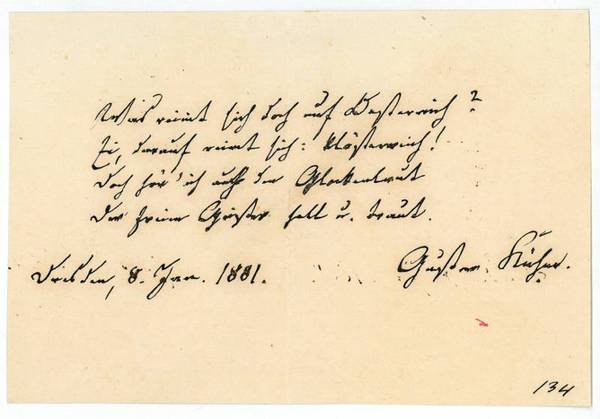 Was reimt sich doch auf Oesterreich?
Ei, darauf reimt sich: klösterreich!
Doch hör' ich auch den Glockenlaut
Der freien Geister hell u. traut.
Dresden, 8. Jan. 1881.
Gustav Kühne.
134